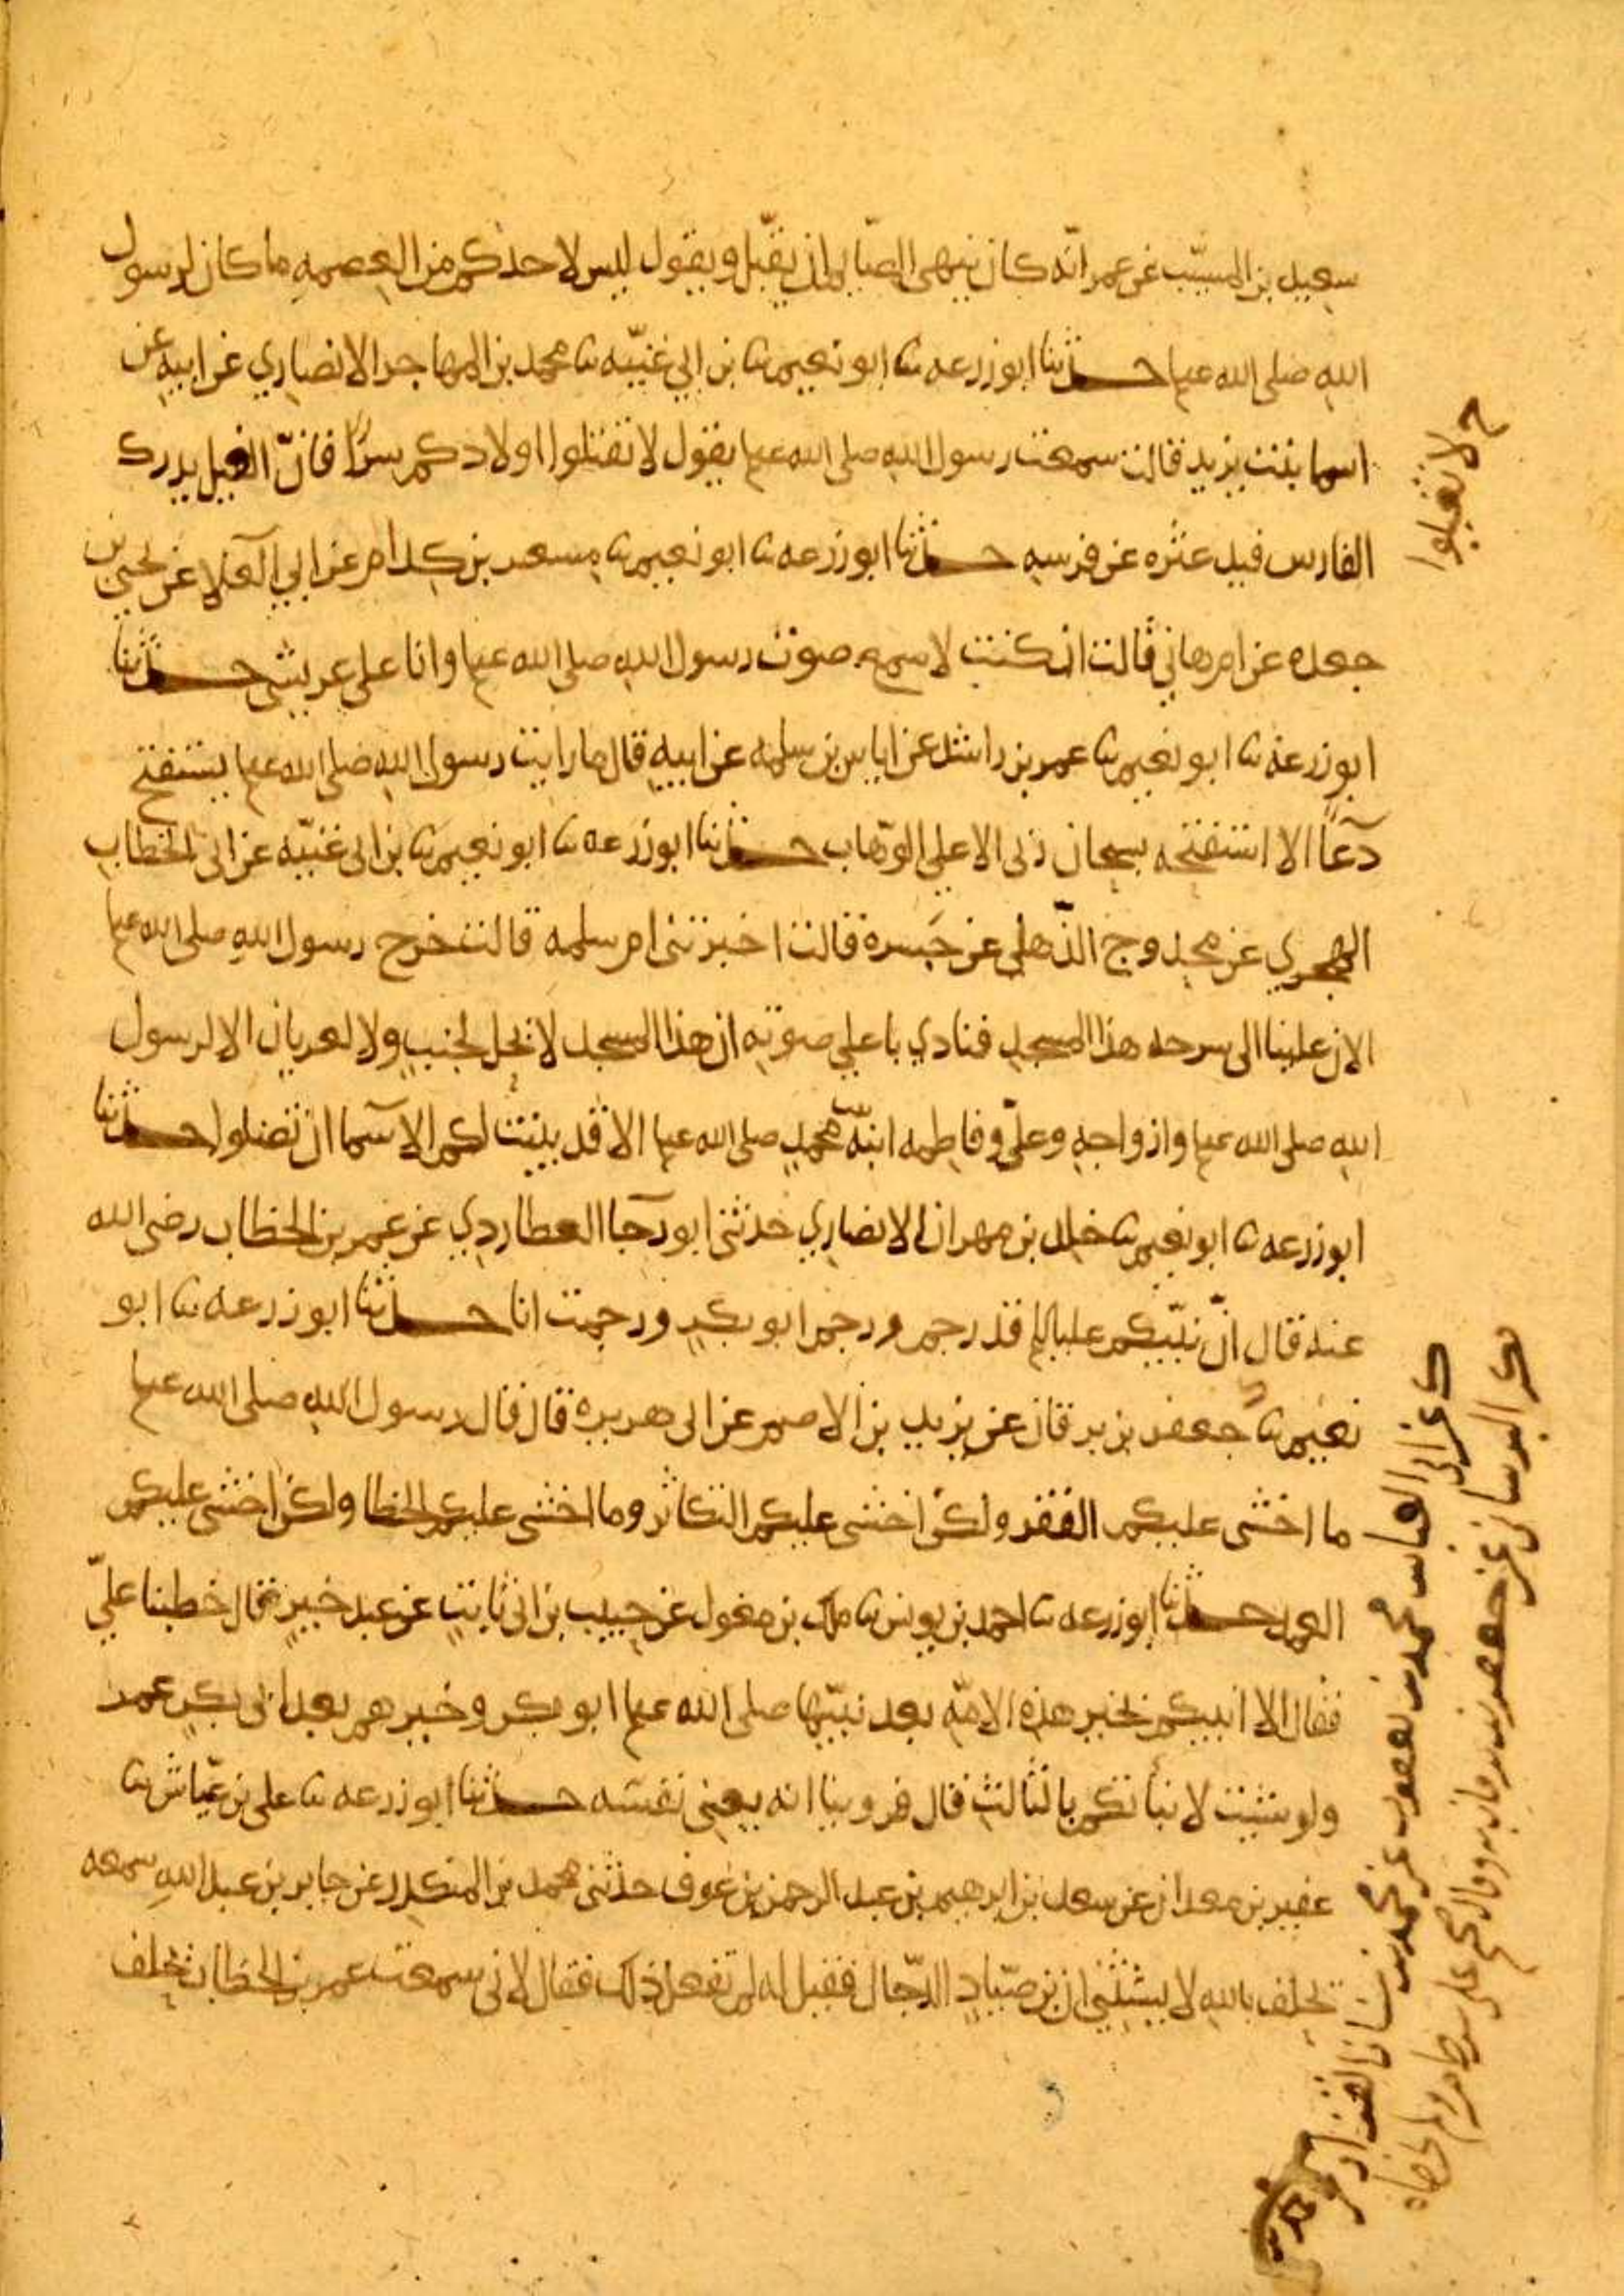 سعيد بن المسيّب عن عمر انّه كان ينهى الصّايم ان يقبّل ويقول ليس لاحدكم من العصمه ما كان لرسول
الله صلى الله عليه حدثنا ابو زرعه نا ابو نعيم نا بن ابي غنيّه نا محمد بن المهاجر الانصاري عن ابيه عن
اسما بنت يزيد قالت سمعت رسول الله صلى الله عليه يقول لا تقتلوا اولادكم سرًّا فانّ الغيل يدرك
الفارس فيدعثره عن فرسه حدثنا ابو زرعه نا ابو نعيم نا مسعر بن كدام عن ابي العلا عن يحيى بن
جعده عن ام هاني قالت ان كنت لاسمع صوت رسول الله صلى الله عليه وانا على عريشي حدثنا
ابو زرعه نا ابو نعيم نا عمر بن راشد عن اياس بن سلمه عن ابيه قال ما رايت رسول الله صلى الله عليه يستفتح
دعآءً الا استفتحه بسبحان ربي الاعلي الوّهاب حدثنا ابو زرعه نا ابو نعيم نا بن ابي غنيّه عن ابي الخطاب
الهجري عن محدوج الذّهلي عن جَسره قالت اخبرتني ام سلمه قالت خرج رسول الله صلى الله عليه
الان علينا الى سرحه هذا المسجد فنادي باعلي صوته ان هذا المسجد لا تحل لجنب ولا لعريان الا لرسول
الله صلى الله عليه وازواجه وعليّ وفاطمه ابنة محمد صلى الله عليه الا قد بينت لكم الاسما ان تضلوا حدثنا
ابو زرعه نا ابو نعيم نا خلد بن مهران الانصاري حدثني ابو رجا العطاردي عن عمر بن الخطاب رضي الله
عنه قال انّ نبيّكم عليه السلم قد رجم ورجم ابو بكر ورجمت انا حدثنا ابو زرعه نا ابو
نعيم نا جعفر بن برقان عن يزيد بن الاصم عن ابي هريره قال قال رسول الله صلى الله عليه
ما اخشى عليكم الفقر ولكن اخشى عليكم التكاثر وما اخشى عليكم الخطا ولكن اخشى عليكم
العمد حدثنا ابو زرعه نا احمد بن يونس نا ملك بن مغول عن حبيب بن ابي ثابت عن عبد خير قال خطبنا عليّ
فقال الا انبيكم بخير هذه الامّه بعد نبيّها صلى الله عليه ابو بكر وخيرهم بعد ابي بكر عمر
ولو شيت لانبأتكم بالثالث قال فروينا انه يعني نفسه حدثنا ابو زرعه نا علي بن عيّاش نا
عفير بن معدان عن سعد بن ابرهيم بن عبد الرحمن بن عوف حدثني محمد بن المنكدر عن جابر بن عبد الله سمعه
يحلف بالله لا يستثني ان بن صيّاد الدّجال فقيل له لم تفعل ذلك فقال لاني سمعت عمر بن الخطاب يحلف
لا تقتلوا
ك عن ابي العباس محمد بن يعقوب عن محمد بن
ك البرساني عن جعفر بن برقان به وقال صحيح على شرط م ولم يخرجاه